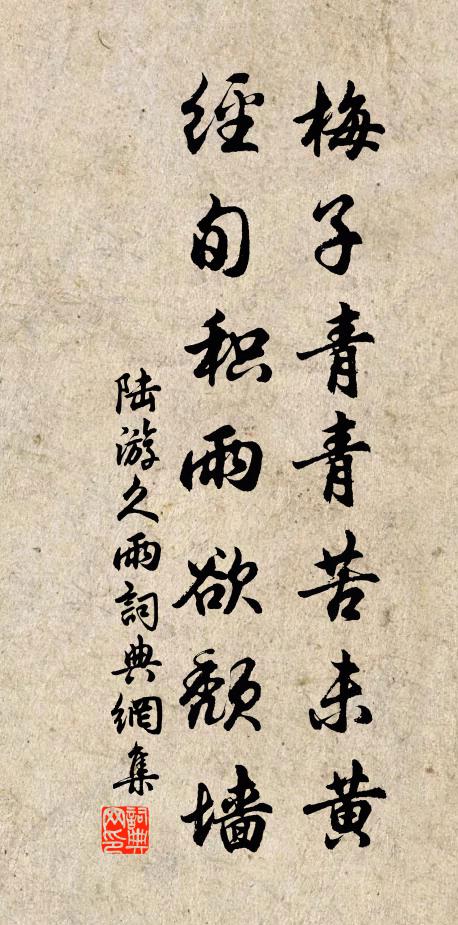 梅子青青苦未黄
經旬积雨欲颓墙
陆游久雨詞典網集
詞典网印